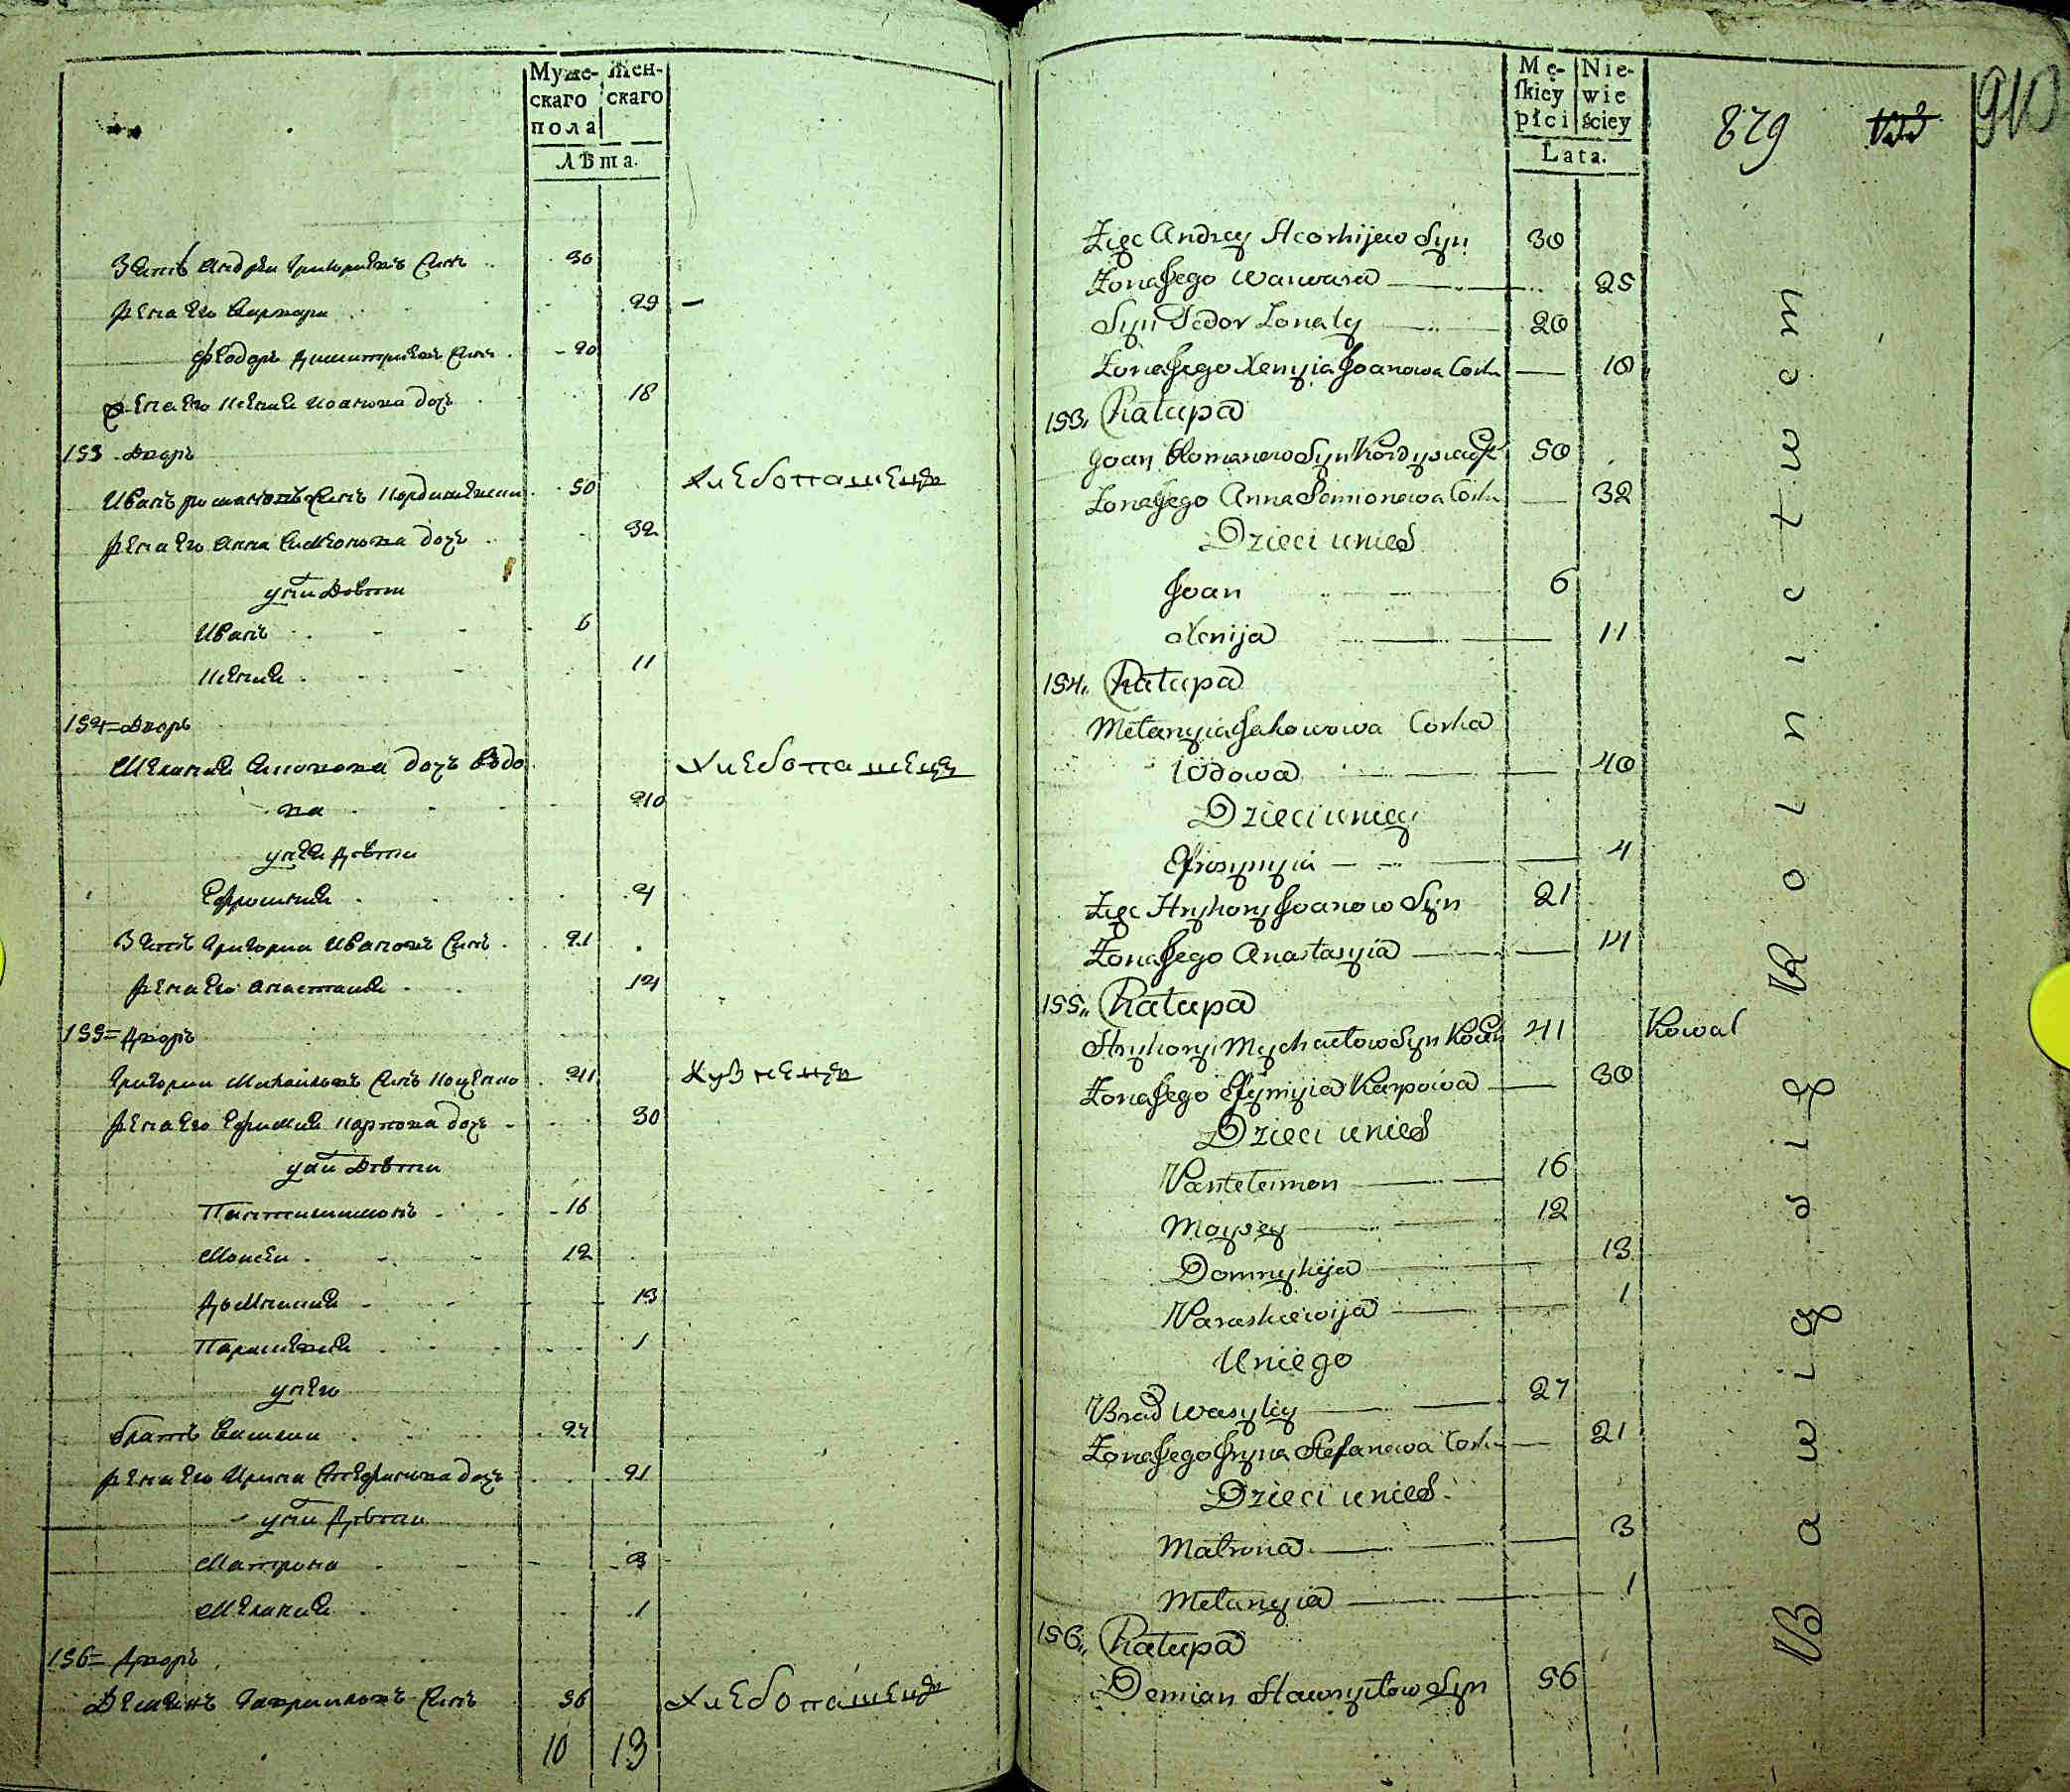 Муже-
скаго
пола
Жен-
скаго
Лѣта.
Зять Андрей Григориевъ Сынъ 30
жена его Варвара 29
Феодоръ Димитриевъ Сынъ 20
жена его Ксения Иванова дочь 18
153 Дворъ
Иванъ Романовъ Сынъ 50 Хлебопашецъ
жена его Анна Симеонова дочь 32
у них Дѣти
Иванъ 6
Ксения 11
154 = Дворъ
Мелания дочь Вдо Хлебопашецъ
ва 40
у нея Дѣти
Ефросиния 4
Зять Григорий Ивановъ Сынъ 21
жена его Анастасия 14
155 = Дворъ
Григорий Михайловъ Сынъ Коценко 41 Кузнецъ
жена его Ефимия Карпова дочь 30
у них Дѣти
Пантилимонъ 16
Моисей 12
Домникия 13
Параскевия 1
у него
братъ Василий 27
жена его Ирина Стефанова дочь 21
у них Дѣти
Матрона 3
Мелания 1
156 = Дворъ
Демианъ Гавриловъ Сынъ 56 Хлебопашецъ
10 13
Mę-
ſkiey
płci
Nie-
wie
ściey
Lata.
879
910
Zięc Andrey Heorhijew Syn 30
Zona Jego Warwara 25
Syn Fedor Zonaty 20
Zona Jego Xenyia Joanowa Corka 18
153. Chałupa
Joan Romanow Syn 50
Zona Jego Anna Semionowa Corka 32
Dzieci u nich
Joan 6
Xenija 11
154. Chałupa
Mełanyia Jakowowa Corka
Wdowa 40
Dzieci u niey
Efrosynyia 4
Zięc Hryhory Joanow Syn 21
Zona Jego Anastasyia 14
155. Chałupa
Hryhoryi Mychałow Syn 41 Kowal
Zona Jego Efymyia Karpowa 30
Dzieci u nich
Panteleimon 16
Moysey 12
Domnykija 13
Paraskiewija 1
U niego
Brad Wasyliy 27
Zona Jego Iryna Stefanowa Corka 21
Dzieci u nich
Matrona 3
Mełanyia 1
156. Chałupa
Demian Hawryłow Syn 56
Bawią się Rolnictwem